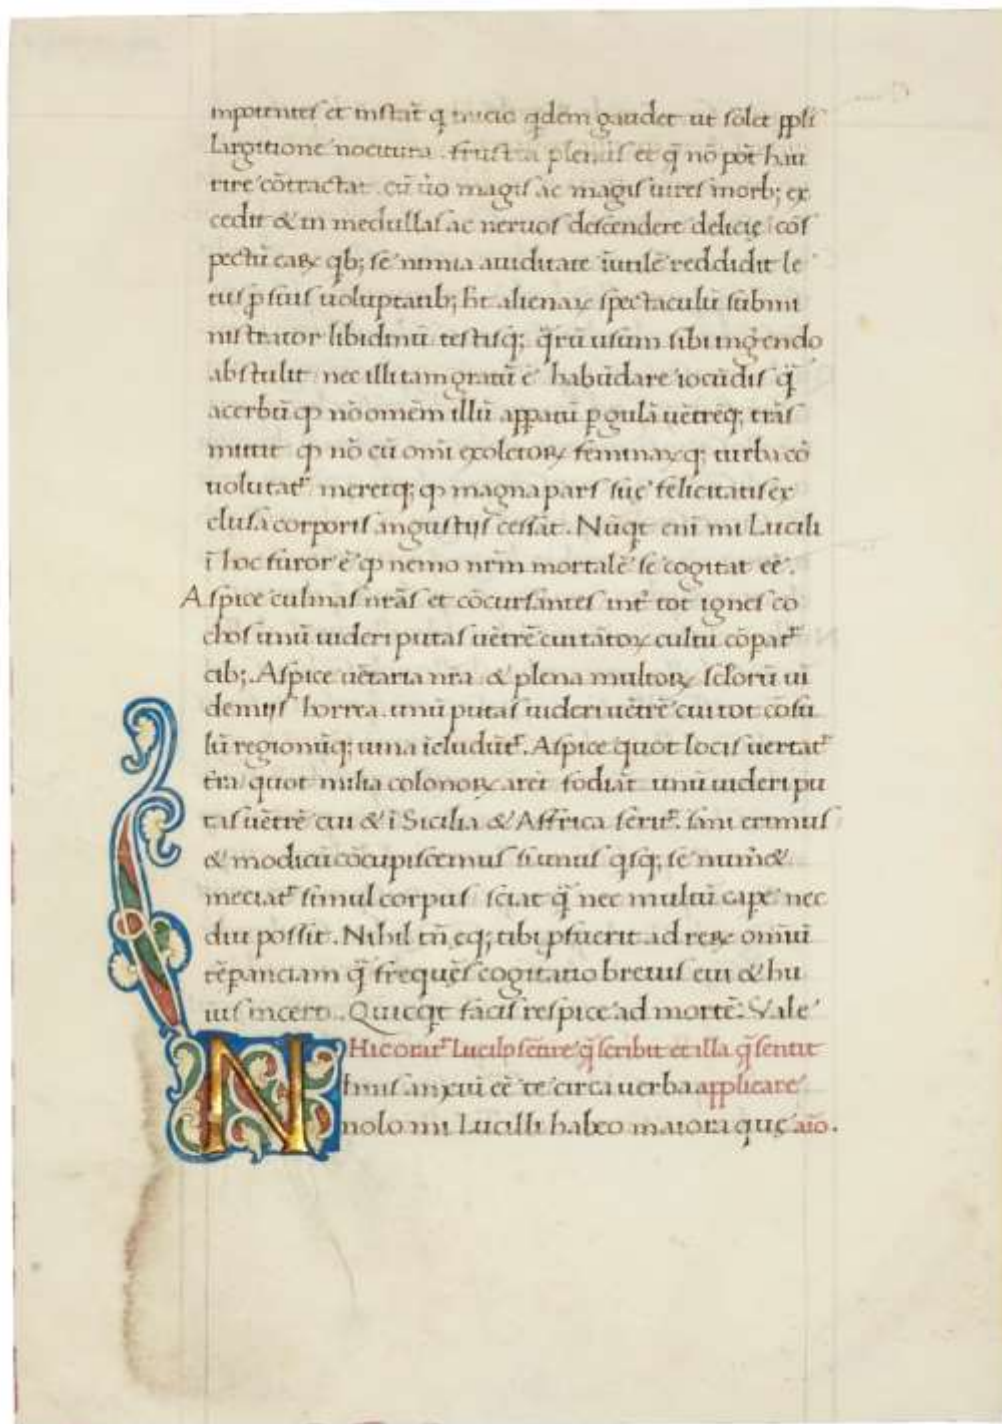 inpotentes et instat̄ q̨ inicio q̄dem gaudet ut solet ꝓpli
largitione nocitura . frustra plenus et q̄ nō pōt hau
rire cōtractat . cū ūo magis ac magis uires morb; ex
cedit & in medullas ac neruos descendere delicię cōs
pectū eaꝝ qb; se nimia auiditate īutilē reddidit le
tus ꝓ suis uoluptatib; ht̄ alienaꝝ spectaculū submi
nistrator libidinū testisq; q̄rū usum sibi ingēndo
abstulit nec illi tam gratū ē habūdare iocūdis q̄
acerbū ꝙ nō omēm illū apꝑatū ꝑ gulā uētreq; trās
mittit ꝙ nō cū omī exoletoꝝ feminaꝝq; turba cō
uolutat᷑ meretq; ꝙ magna pars suę felicitatis ex
clusa corporis angustijs cessāt . Nūqt enī mi Lucili
ī hoc furor ē ꝙ nemo nr̄m mortalē se cogitat eē .
Aspice culinas nr̄as et cōcursantes int̄ tot ignes co
chos unū uideri putas uētrē cui tātoꝝ cultū cōpat᷑
cib; . Aspice uētaria nr̄a & plena multoꝝ sc̄loꝝ ui
demijs horrea . unū putas uideri uētrē cui tot cōsu
lū regionūq; uina īcludūt᷑ . Aspice quot locis uertat᷑
tr̄a quot milia colonoꝝ arēt fodiāt unū uideri pu
tas uētrē cui & ī Sicilia & Affrica serit᷑ . sani erimus
& modicū cōcupiscemus si unus q̄sq; se num̄&
meciat᷑ simul corpus sciat q̄ nec multū cape nec
diu possit . Nihil tn̄ eq; tibi ꝓfuerit ad reꝝ omīū
tēpanciam q̄ frequēs cogitatio breuis eui & hu
ius incerti . Quicqt facis respice ad mortē . Vale
Hic orat᷑ Lucil ꝓ sētire q̄ scribit et illa q̄ sentit
N Imis anxiū eē te circa uerba applicare
nolo mi Lucilli habeo maiora quę aīo .